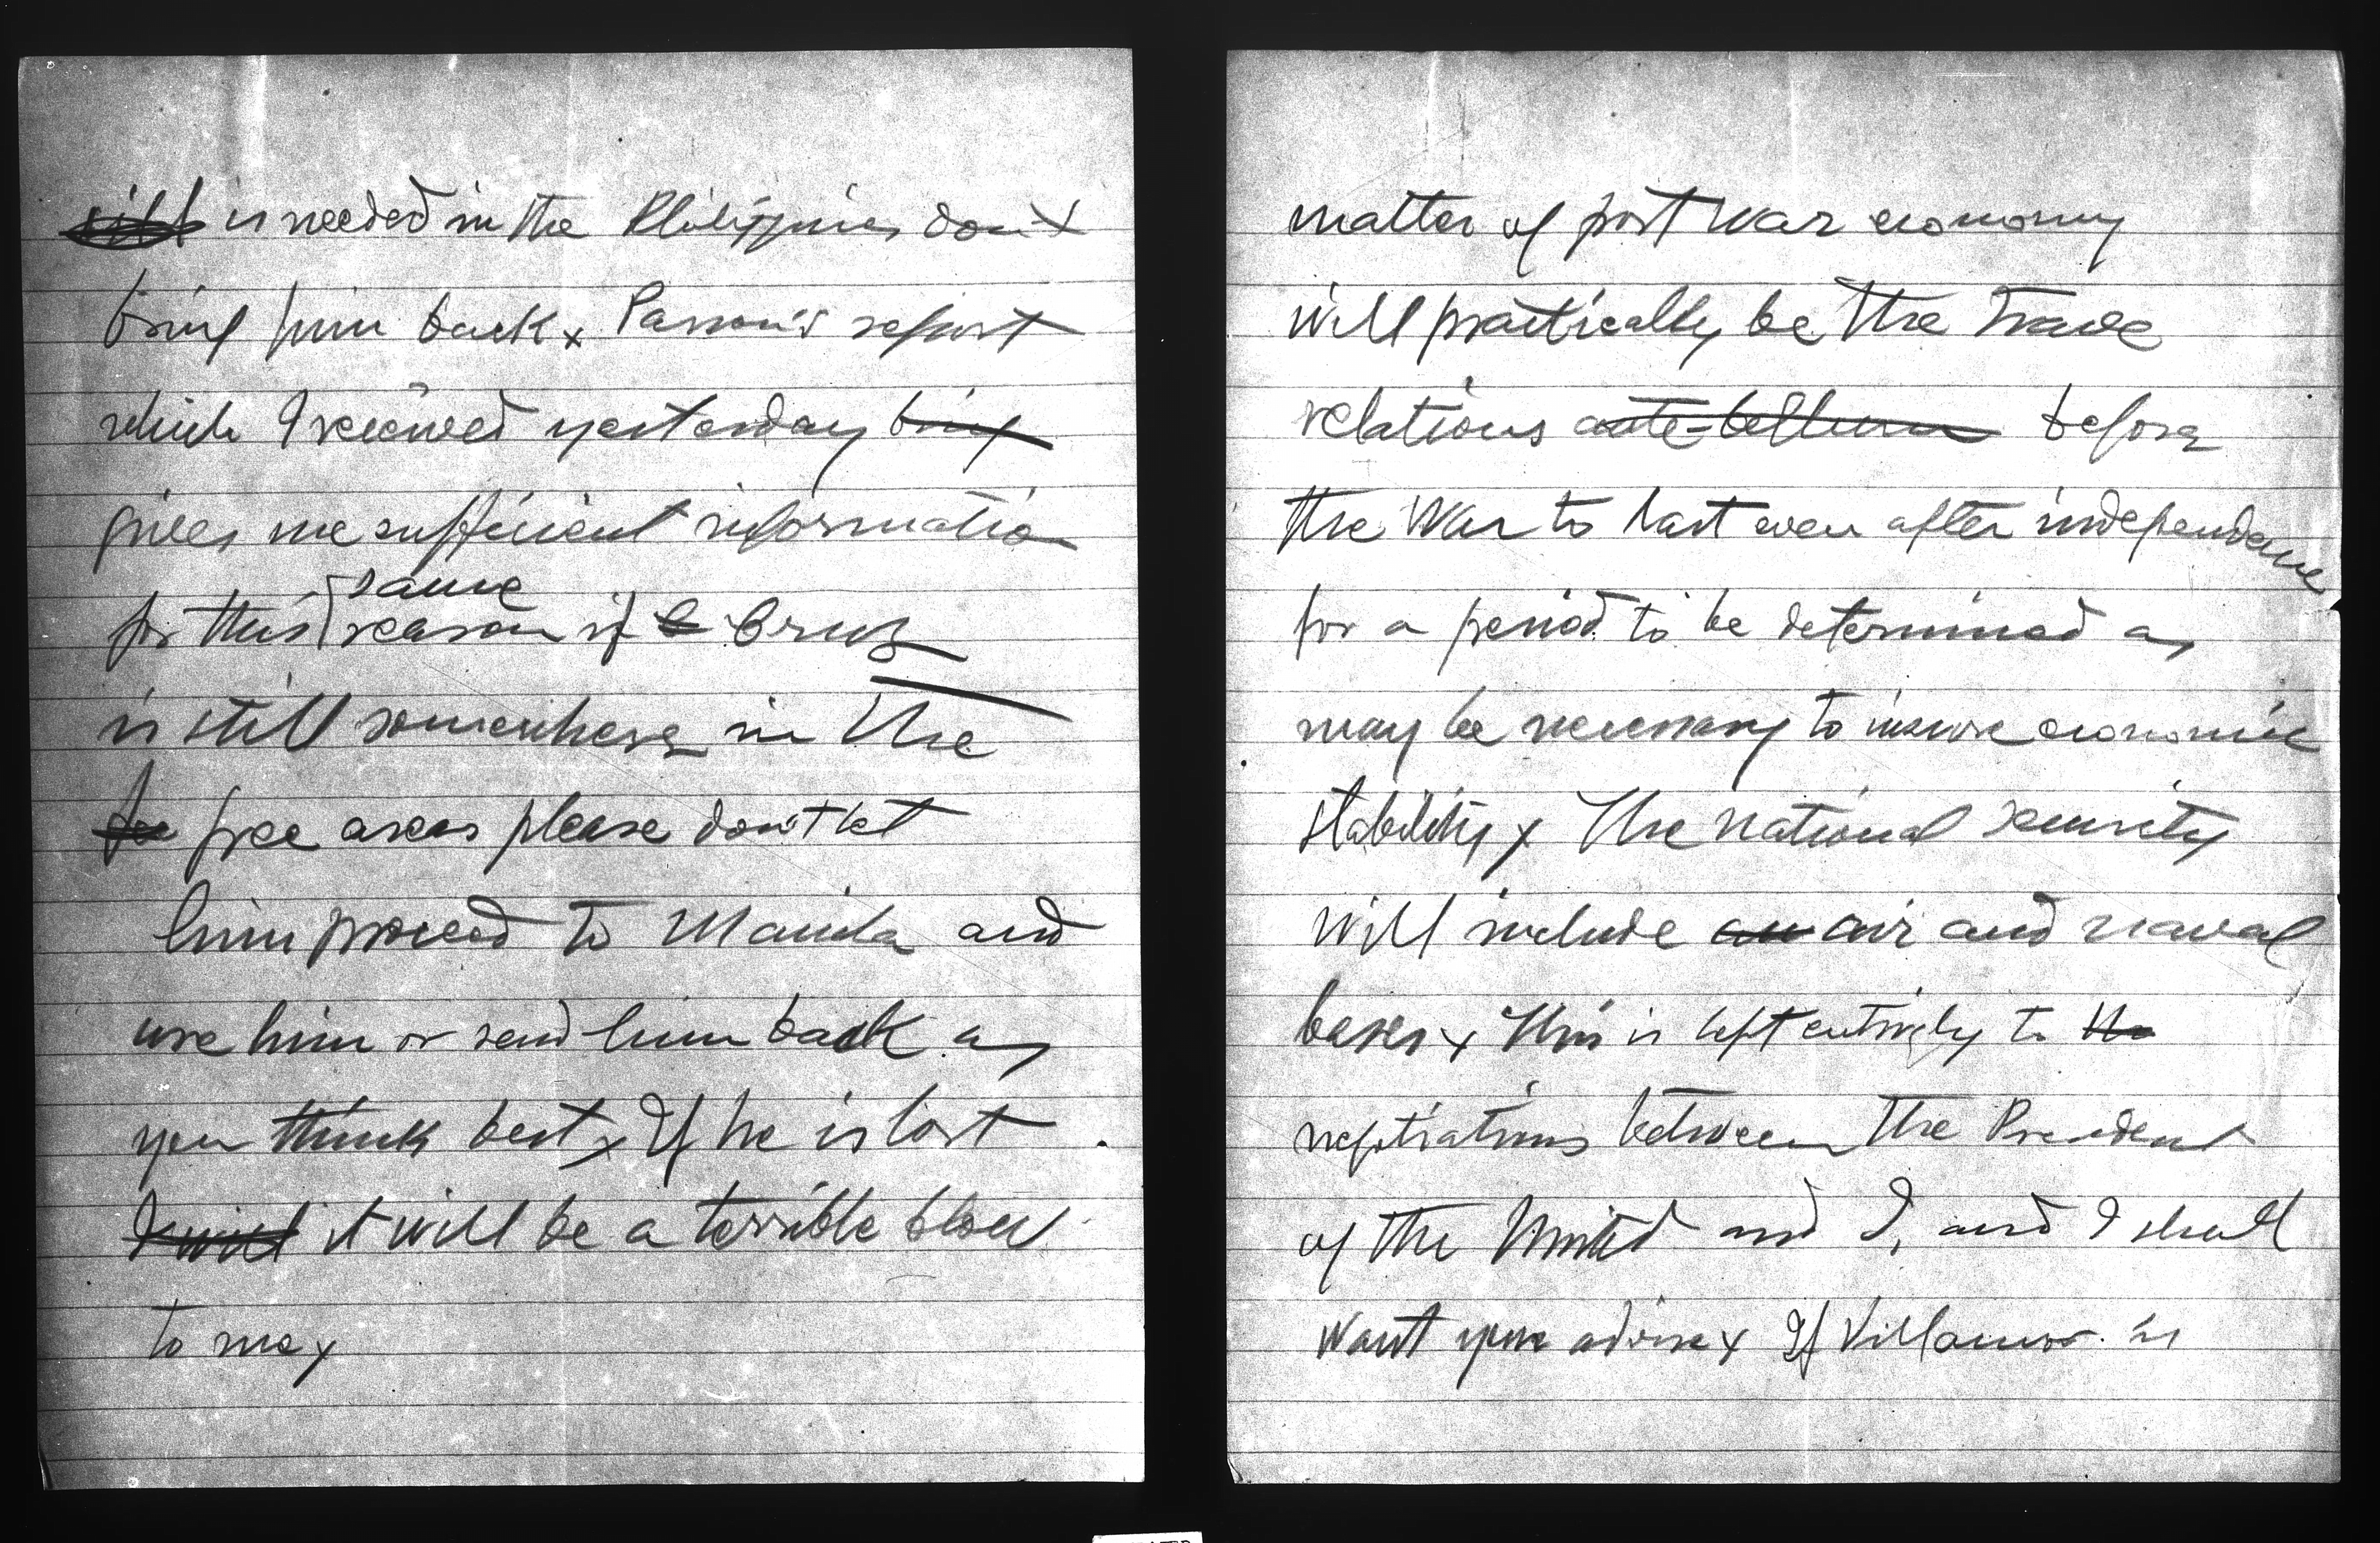 will is needed in the Philippines don't
bring him back x Parson's report
which I received yesterday bring
gives me sufficient information
for this same reason if C Cruz
is still somewhere in the
fre free areas please don't let
him proceed to Manila and
use him or send him back as
you think best x If he is lost
I will it will be a terrible blow
to me x
matter of post war economy
will practically be the trade
relations ante-bellum before
the War to last even after independence
for a period to be determined as
may be necessary to insure economic
stability x The national security
will include an air and naval
bases x This is left entirely to the
negotiations between the President
of the United and I, and I shall
want your advise x If Villamor is